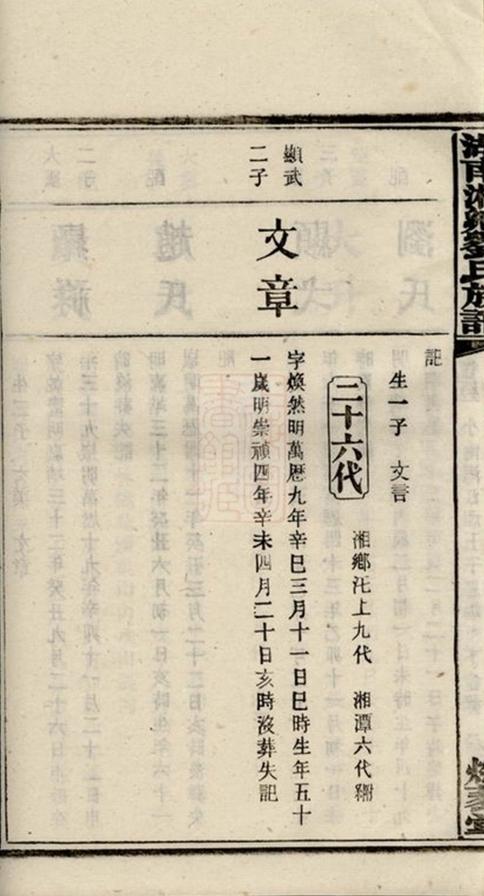 湖南湘鄉劉氏族譜
堂
記
生一子 文言
二十六代
湘鄉上九代 湘潭六代
顯武
二子
文章
字煥然明萬曆九年辛巳三月十一日巳時生年五十
一歲明崇禎四年辛未四月二十日亥時沒葬失記